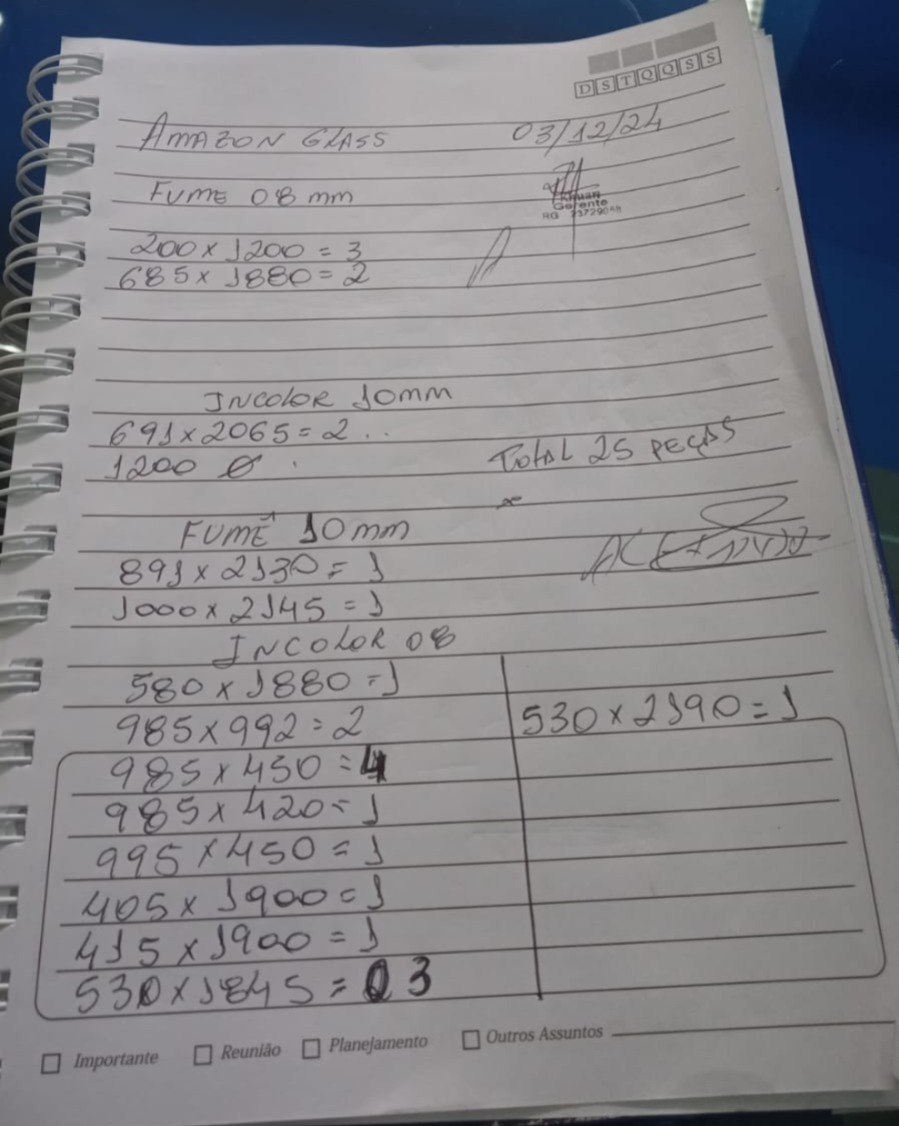 D S T Q Q S S
AMAZON GLASS 03/12/24
FUME 08 mm
Gerente
RG 23729048
200 x 1200 = 3
685 x 1880 = 2
INCOLOR 10mm
691 x 2065 = 2 ..
1200 Ø .
TOTAL 25 PEÇAS
FUMÊ 10mm
891 x 2130 = 1
1000 x 2145 = 1
INCOLOR 08
580 x 1880 = 1
985 x 992 = 2
530 x 2190 = 1
985 x 450 = 4
985 x 420 = 1
995 x 450 = 1
405 x 1900 = 1
415 x 1900 = 1
530 x 1845 = 03
Importante Reunião Planejamento Outros Assuntos